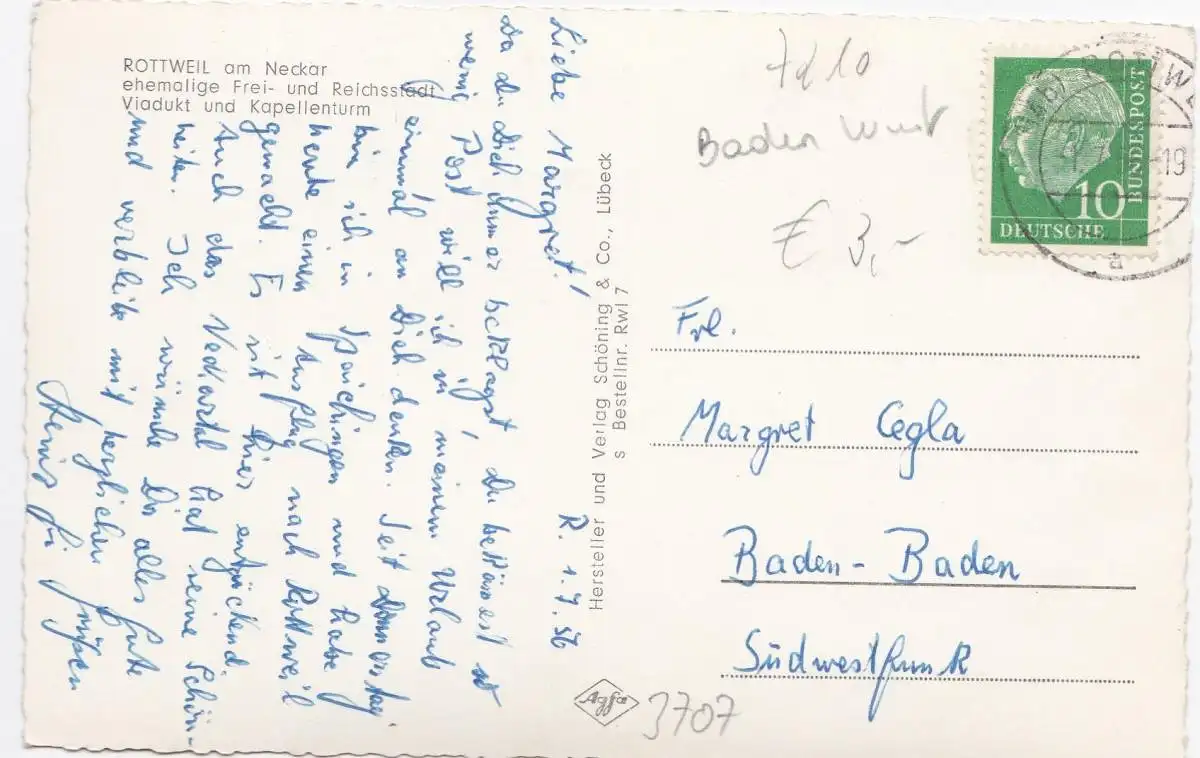 ROTTWEIL am Neckar
ehemalige Frei- und Reichsstadt
Viadukt und Kapellenturm
R. 1.7.56
Liebe Margret!
Da du Dich immer beklagst, du bekämest so
wenig Post, will ich in meinem Urlaub
einmal an Dich denken. Seit Donnerstag
bin ich in Spaichingen und habe
heute einen Ausflug nach Rottweil
gemacht. Es ist hier entzückend.
Auch das Neckartal hat seine Schön-
heiten. Ich wünsche Dir alles Gute
und verbleibe mit herzlichen Grüßen
Hersteller und Verlag Schöning & Co., Lübeck
s Bestellnr. Rwl 7
Agfa
7d10
Baden Wurt
€ 3,-
BUNDESPOST
10
DEUTSCHE
-19
a
Frl.
Margret Cegla
Baden-Baden
Südwestfunk
3707